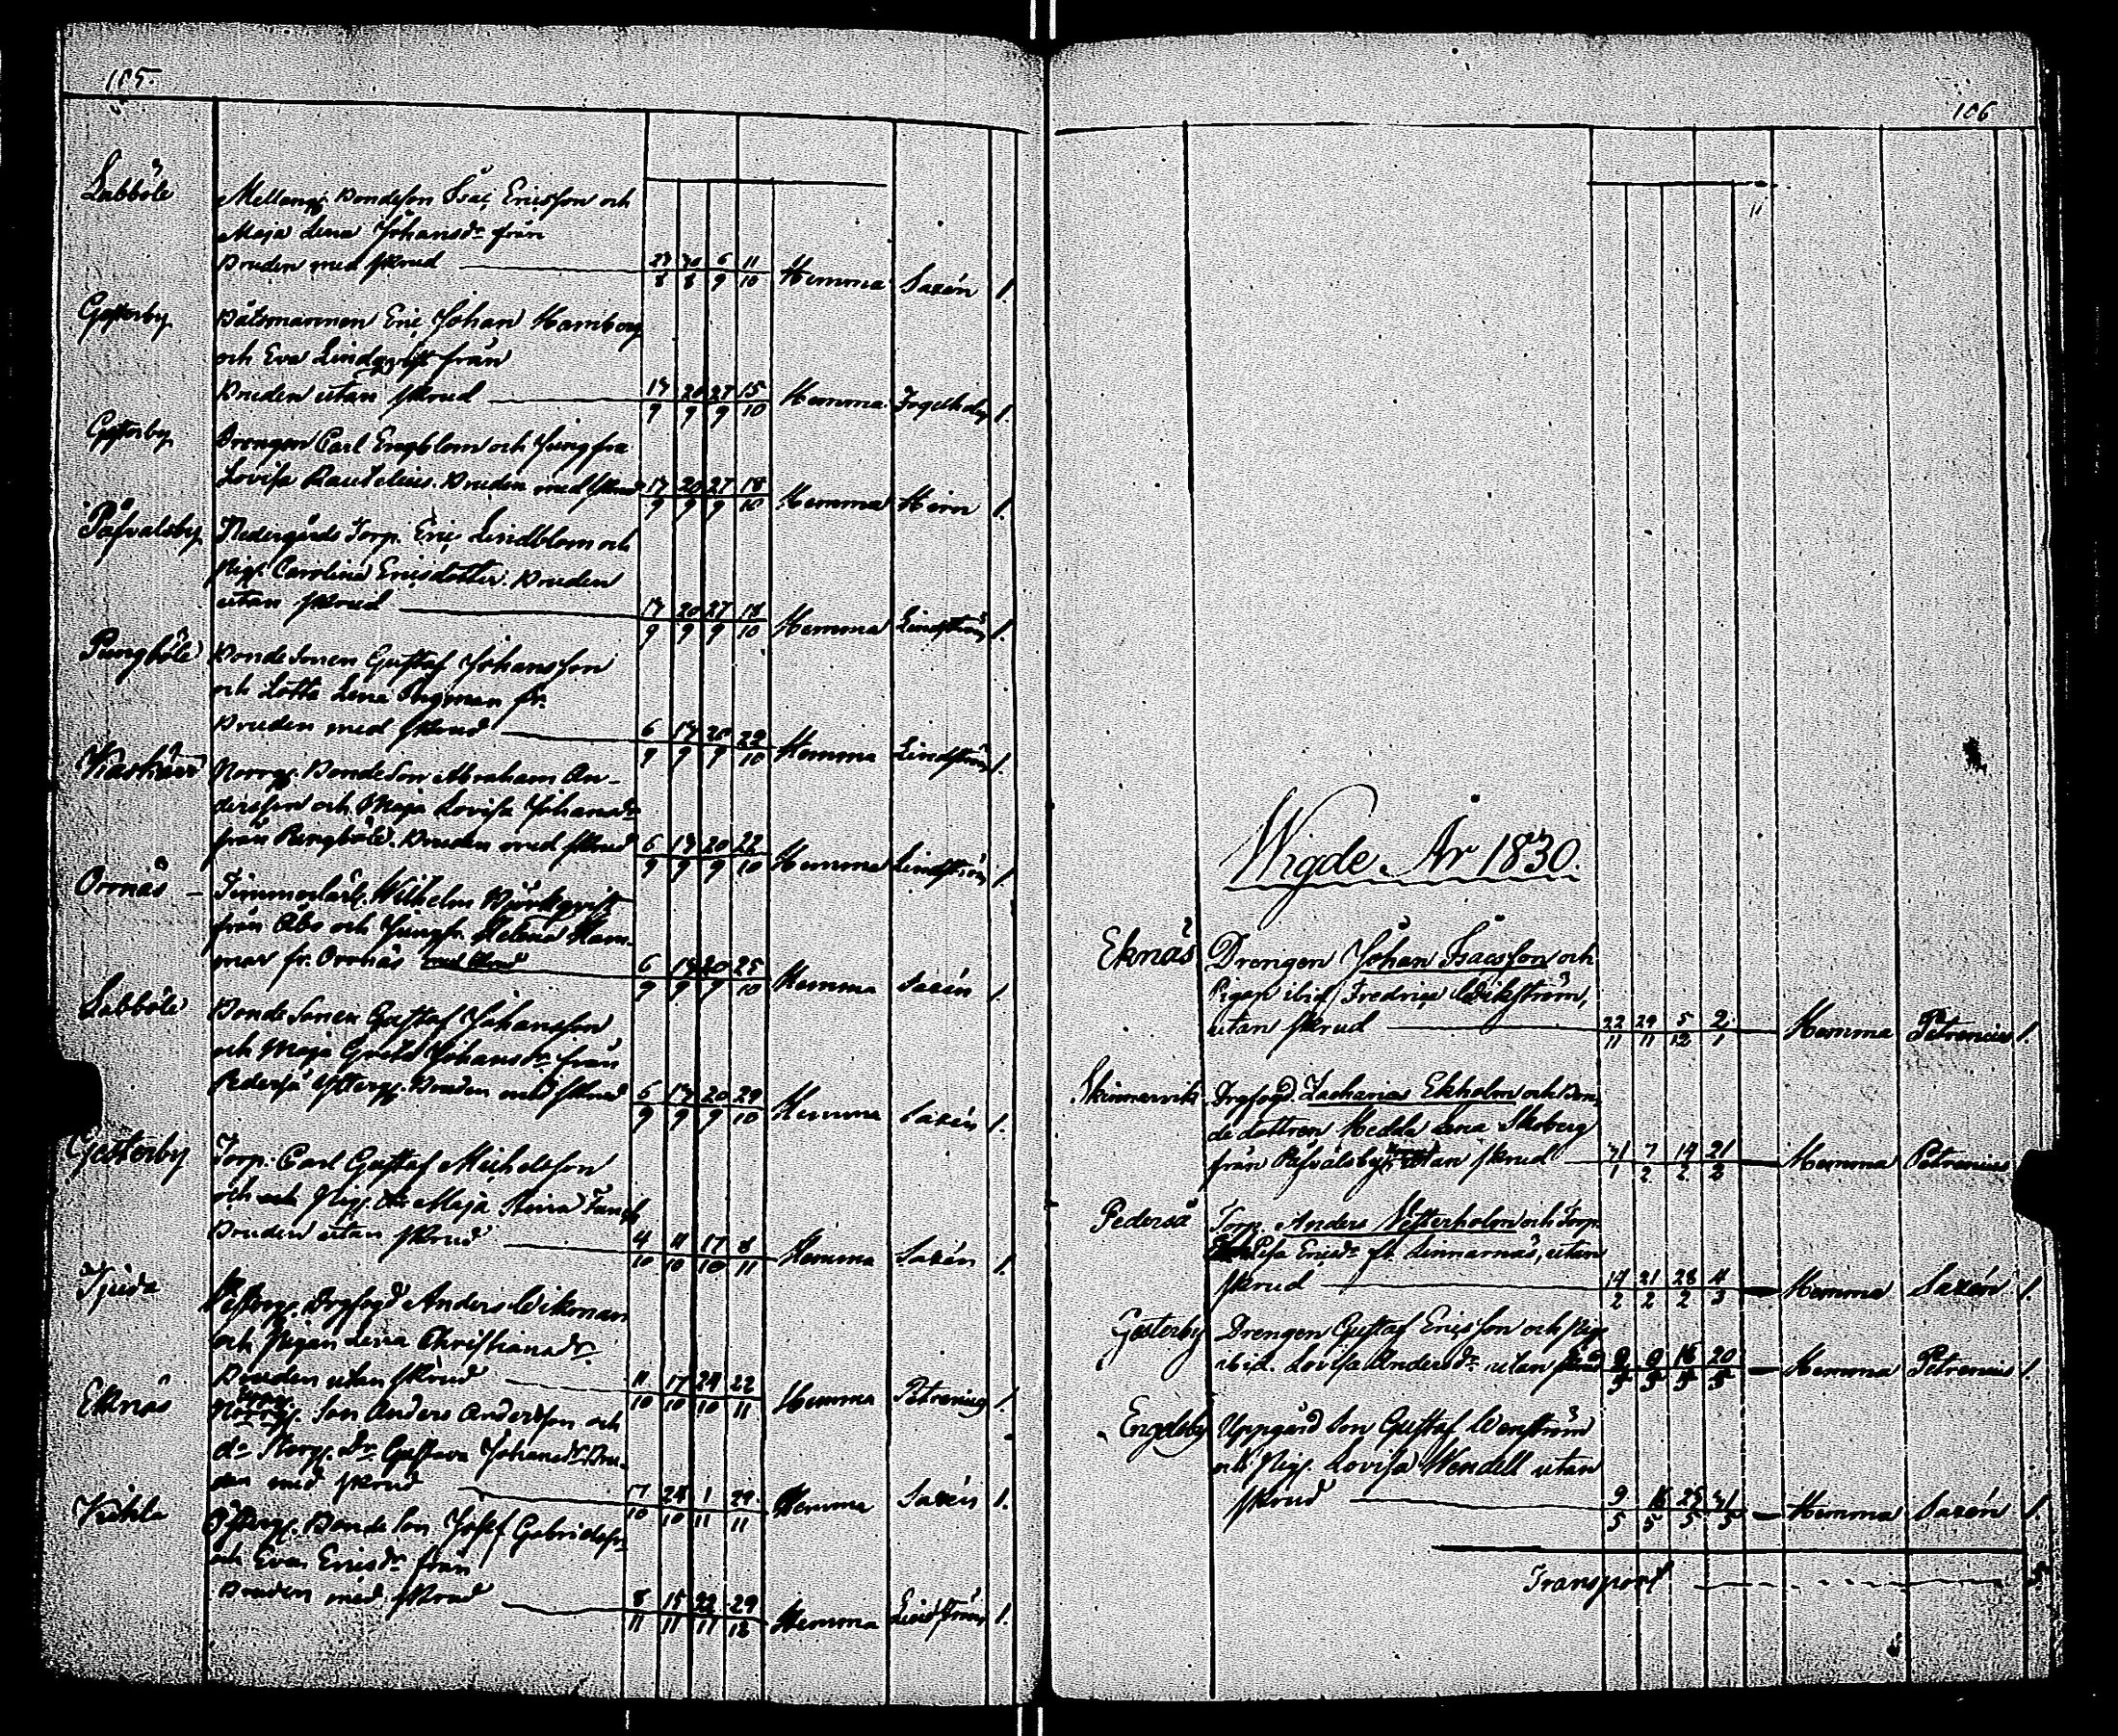 105.
Labböle Mellang. Bondeson Isac Ericsson och
Maja Lena Johansdr från
Bruden med skrud 23/8 30/8 6/9 11/10 Hemma Saxén 1.
Gesterby Båtsmannen Eric Johan Hamberg
och Eva Lindqvist från
Bruden utan skrud 13/9 20/9 27/9 15/10 Hemma 1.
Gesterby Drengen Carl Engblom och Jungfru
Lovisa Bruden med skrud 13/9 20/9 27/9 18/10 Hemma Hirn 1.
Påfvalsby Nedergårds Torp. Eric Lindblom och
Pig. Carolina Ericsdotter. Bruden
utan skrud 13/9 20/9 27/9 18/10 Hemma Lindström 1.
Pungböle Bondesonen Gustaf Johansson
och Lotta Lena Ingman fr.
Bruden med skrud 6/9 13/9 20/9 22/10 Hemma Lindström 1.
Norrg. Bondeson Abraham An-
dersson och Maja Lovisa Johansdr
från Pungböle. Bruden med skrud 6/9 13/9 20/9 22/10 Hemma Lindström 1.
Ornäs Timmerkarl. Wilhelm Björkqvist
från Åbo och Jungfr. Helena Ham-
mar fr. Ornäs med skrud 6/9 13/9 20/9 25/10 Hemma Saxén 1.
Labböle Bondesonen Gustaf Johansson
och Maja Greta Johansdr från
Pederså Ytterg. Bruden med skrud 6/9 13/9 20/9 29/10 Hemma Saxén 1.
Gesterby Torp. Carl Gustaf Michelsson
och Pig. Maja Stina
Bruden utan skrud 4/10 11/10 17/10 8/11 Hemma Saxén 1.
Tjuda Drgfogd Anders Wikman
och Pigan Lena Christiansdr.
Bruden utan skrud 11/10 17/10 24/10 22/11 Hemma Petrenius 1.
Eknäs Norrg. Son Anders Andersson och
do Norrg. Dr. Gustava Johansdr Bru-
den med skrud 17/10 24/10 1/11 29/11 Hemma Saxén 1.
Österg. Bondeson Josef Gabrielss.
och Eva Ericsdr från
Bruden med skrud 8/11 15/11 22/11 29/12 Hemma Lindström 1.
106
Wigde År 1830.
Eknäs Drengen Johan Isacsson och
Pigan ibid. Fredrica Wikström,
utan skrud 22/11 29/11 5/12 2/1 Hemma Petrenius 1.
Skinnarvik Drgfogd. Zacharias Ekholm och Bon-
dedottren Hedda Lena Skoberg
från Påfvalsby, utan skrud 31/1 7/2 14/2 21/2 Hemma Petrenius
Pederså Torp. Anders Vetterholm och Torp.
Lisa Ericsdr fr. Linnarnäs, utan
skrud 14/2 21/2 28/2 4/3 Hemma Saxén 1.
Gesterby Drengen Gustaf Ericsson och Pig.
ibid. Lovisa Andersdr utan skrud 16/5 20/5 Hemma Petrenius 1.
Engelsby Uppgård Son Gustaf Wenström
och Pig. Lovisa Wendell utan
skrud 9/5 16/5 31/5 Hemma Saxén 1.
Transport 5